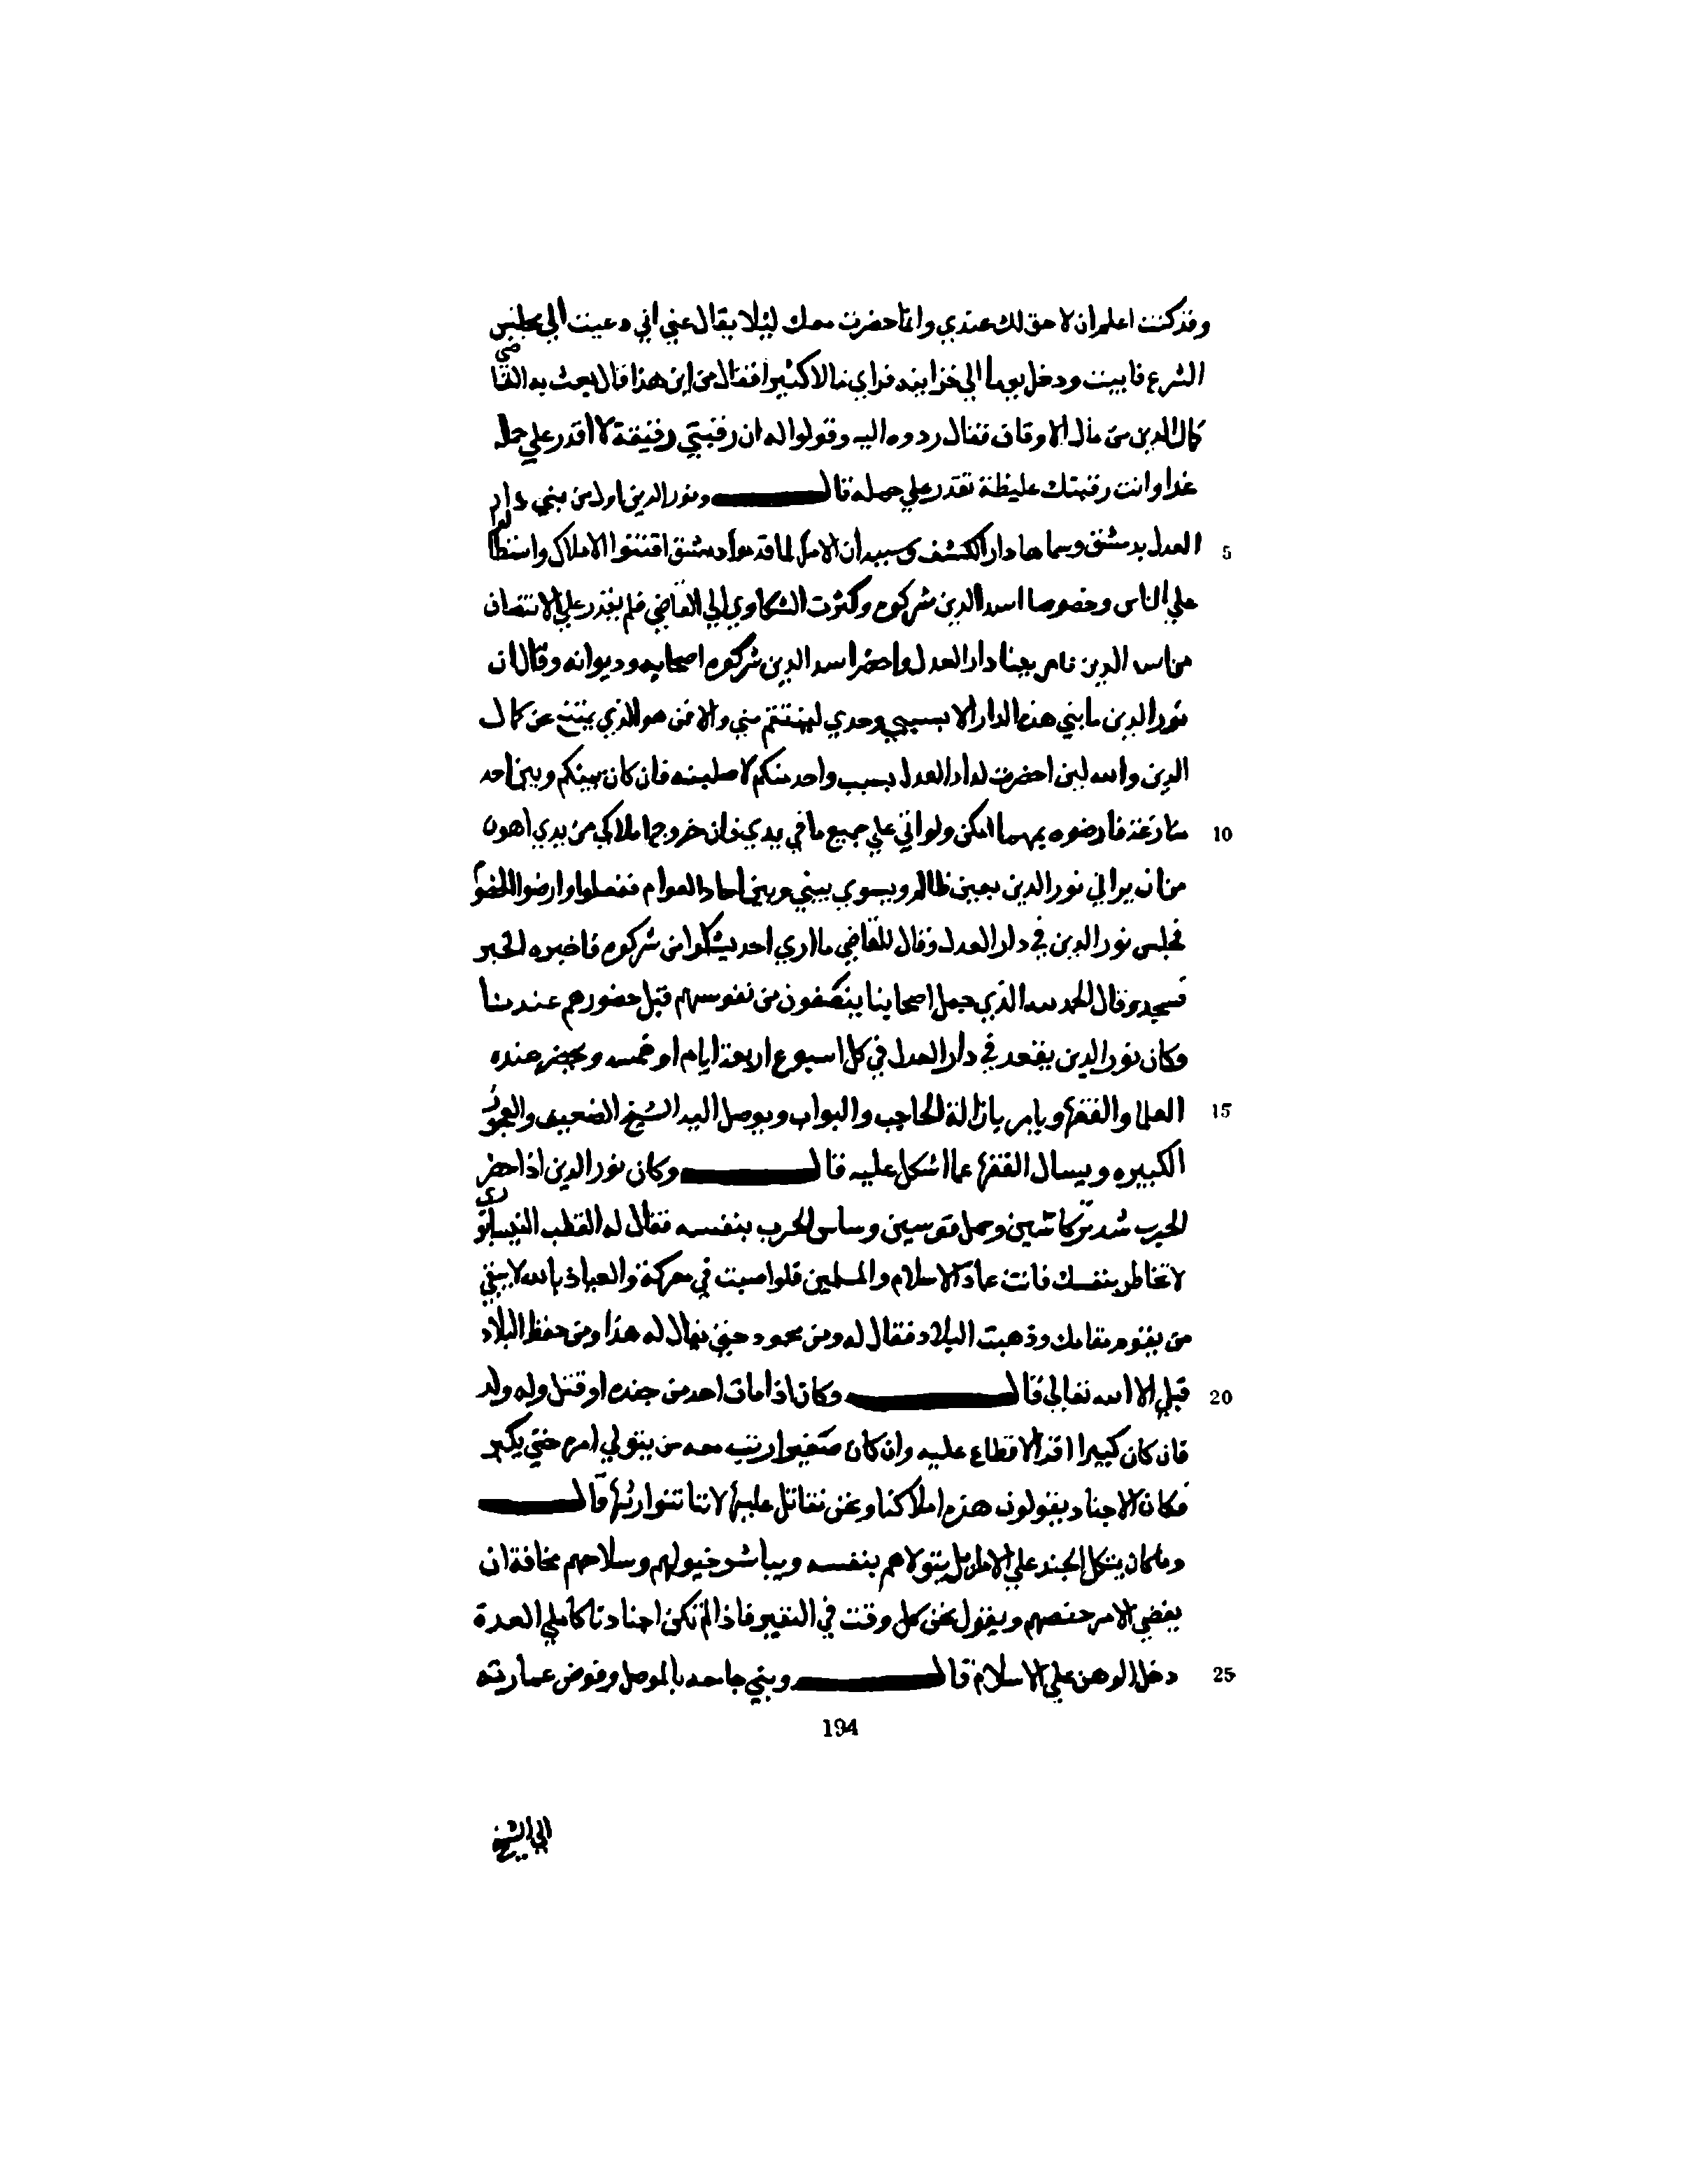 وقد كنت اعلم ان لا حق لك عندي وانما حضرت معك ليلا يقال عني اني دعيت الي مجلس
الشرع فابيت ودخل يوما الي خزانته فراي مالا كثيرا فقال من اين هذا قال بعث به القاضي
كمال الدين من مال الاوقاف فقال ردوه اليه وقولوا له ان رقبتي رقيقة لا اقدر علي حمله
غدا وانت رقبتك غليظة تقدر علي حمله قال ونور الدين اول من بني دار
5 العدل بدمشق وسماها دار الكشف وسببه ان الامرا لما قدموا دمشق اقتنوا الاملاك واستطالوا
علي الناس وخصوصا اسد الدين شركوه وكثرت الشكاوي الي القاضي فلم يقدر علي الانتصاف
من اسد الدين فامر ببنا دار العدل واحضر اسد الدين شركوه اصحابه وديوانه وقال ان
نور الدين ما بني هذه الدار الا بسببي وحدي لينتقم مني والا فمن هو الذي يمتنع عن كمال
الدين والله لين احضرت لدار العدل بسبب واحد منكم لاصلبنه فان كان بينكم وبين احد
10 منازعة فارضوه بمهما امكن ولو اتي علي جميع ما في يدي فان خروج املاكي من يدي اهون
من ان يراني نور الدين بعين ظالم ويسوي بيني وبين احاد العوام ففعلوا وارضوا الخصوم
فجلس نور الدين في دار العدل وقال للقاضي ما اري احد يشكوا من شركوه فاخبره الخبر
فسجد وقال الحمد لله الذي جعل اصحابنا ينصفون من نفوسهم قبل حضورهم عندنا
وكان نور الدين يقعد في دار العدل في كل اسبوع اربعة ايام او خمسه ويحضر عنده
15 العلما والفقها ويامر بازالة الحاجب والبواب ويوصل اليه الشيخ الضعيف والعجوز
الكبيره ويسال الفقها عما اشكل عليه قال وكان نور الدين اذا حضر
الحرب شد تركاشين وحمل قوسين وساس الحرب بنفسه فقال له القطب النيسابوري
لا تخاطر بنفسك فانت عماد الاسلام والمسلمين فلو اصبت في معركة والعياذ بالله لا يبقي
من يقوم مقامك وذهبت البلاد فقال له ومن محمود حتي يقال له هذا ومن حفظ البلاد
20 قبلي الا الله تعالي قال وكان اذا مات احد من جنده او قتل وله ولد
فان كان كبيرا اقر الاقطاع عليه وان كان صغيرا رتب معه من يتولي امره حتي يكبر
فكان الاجناد يقولون هذه املاكنا ونحن نقاتل عليها لاننا نتوارثها قال
وما كان يتكل الجند علي الامرا بل يتولاهم بنفسه ويباشر خيولهم وسلاحهم مخافة ان
يقضي الامر حصصهم ويقول نحن كل وقت في النفير فاذا لم تكن اجنادنا كاملي العدة
25 دخل الوهن علي الاسلام قال وبني جامعه بالموصل وفوض عمارته
194
الي الشيخ